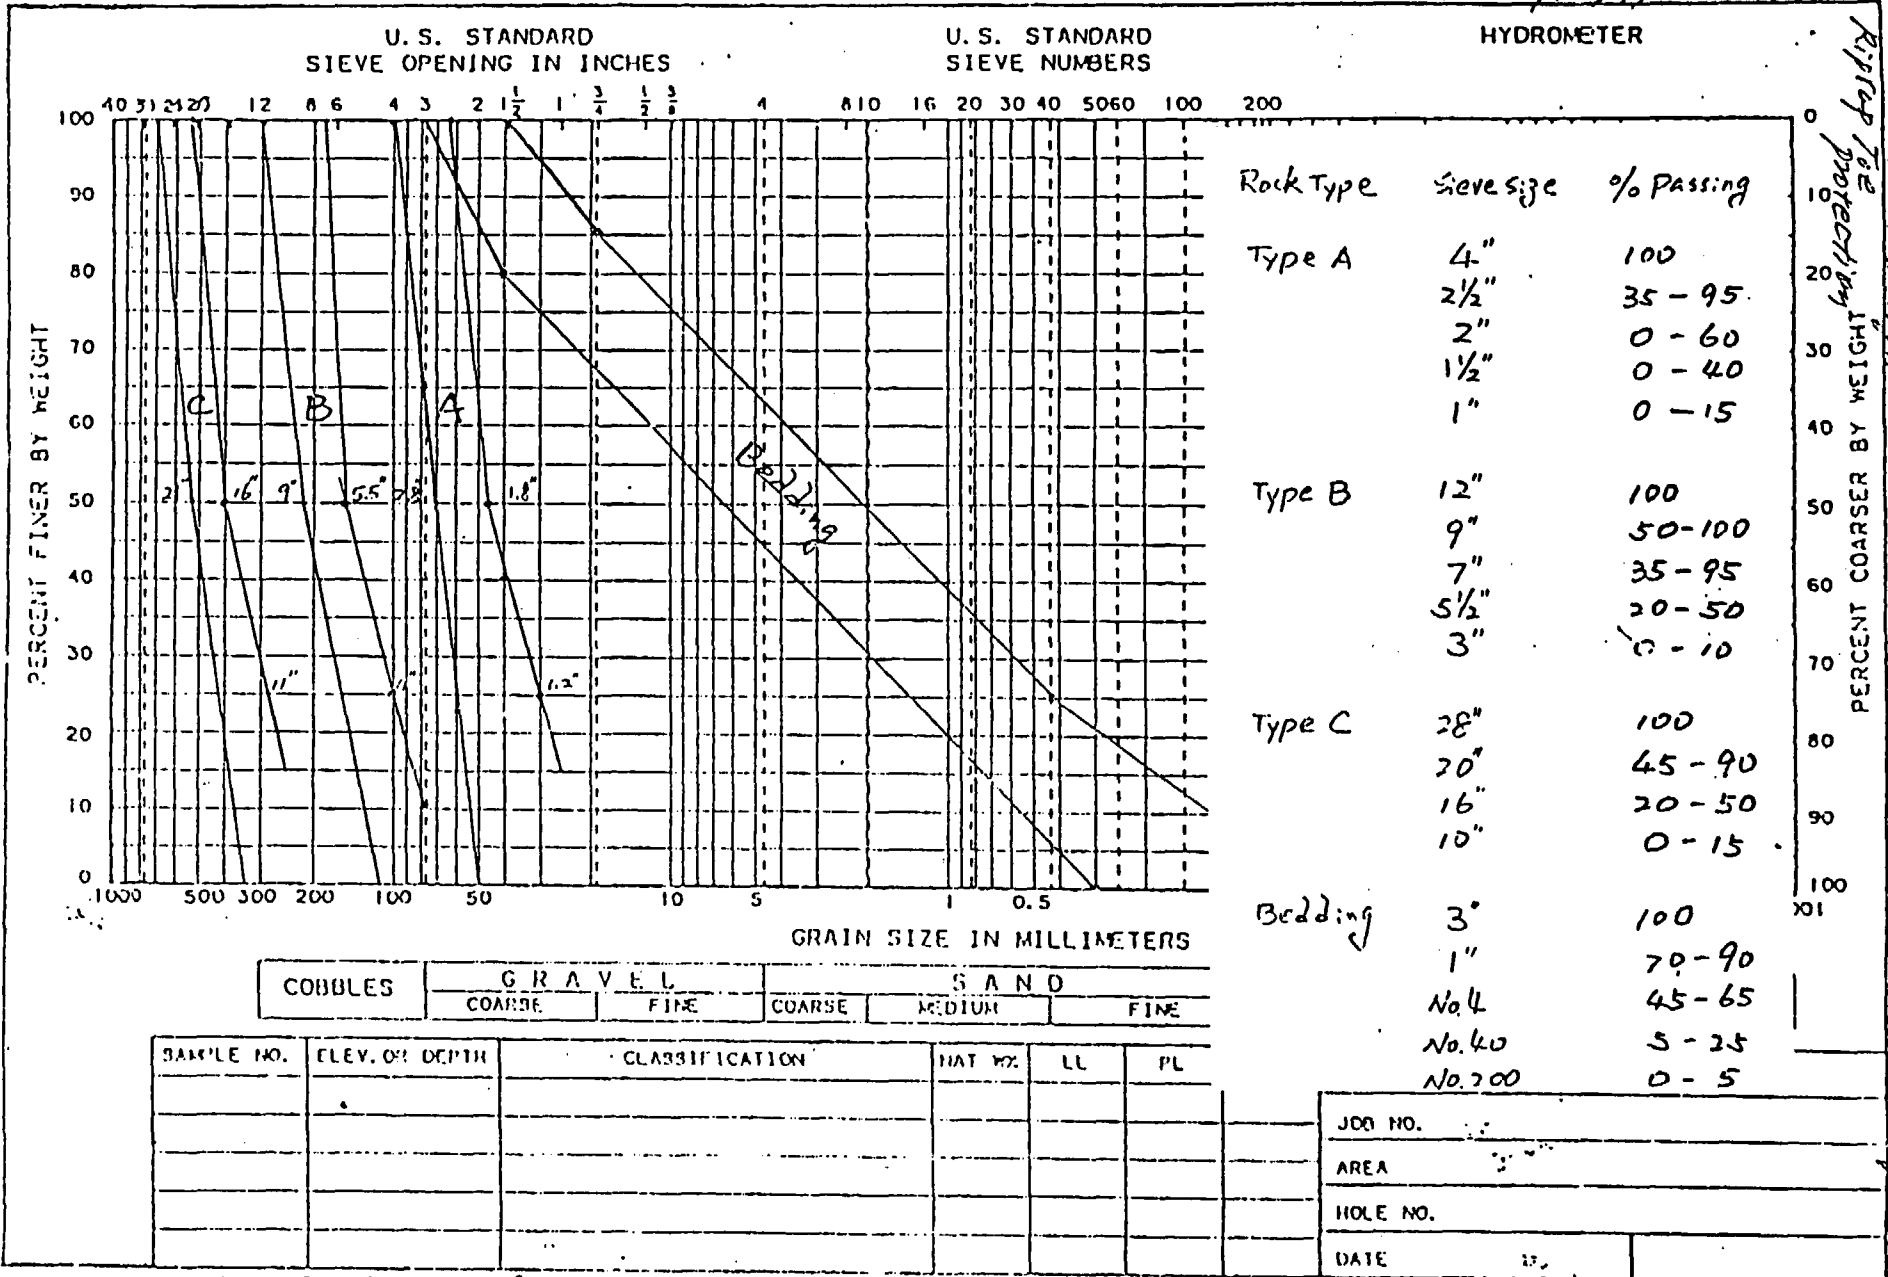 U.S. STANDARD
SIEVE OPENING IN INCHES
U.S. STANDARD
SIEVE NUMBERS
HYDROMETER
Riprap Toe
protection
40 31 24 20 12 8 6 4 3 2 1 1/2 1 3/4 1/2 3/8 4 8 10 16 20 30 40 50 60 100 200
100
90
80
70
60
50
40
30
20
10
0
PERCENT FINER BY WEIGHT
C B A
Bedding
16" 9" 5.5" 1.8"
11" 1.2"
1000 500 300 200 100 50 10 5 1 0.5
GRAIN SIZE IN MILLIMETERS
0
10
20
30
40
50
60
70
80
90
100
PERCENT COARSER BY WEIGHT
Rock Type Sieve size % Passing
Type A 4" 100
2½" 35 - 95
2" 0 - 60
1½" 0 - 40
1" 0 - 15
Type B 12" 100
9" 50-100
7" 35 - 95
5½" 20 - 50
3" 0 - 10
Type C 28" 100
20" 45 - 90
16" 20 - 50
10" 0 - 15
Bedding 3" 100
1" 70 - 90
No.4 45 - 65
No.40 5 - 25
No.200 0 - 5
COBBLES GRAVEL SAND
COARSE FINE COARSE MEDIUM FINE
SAMPLE NO. ELEV. OR DEPTH CLASSIFICATION NAT W% LL PL
JOB NO.
AREA
HOLE NO.
DATE